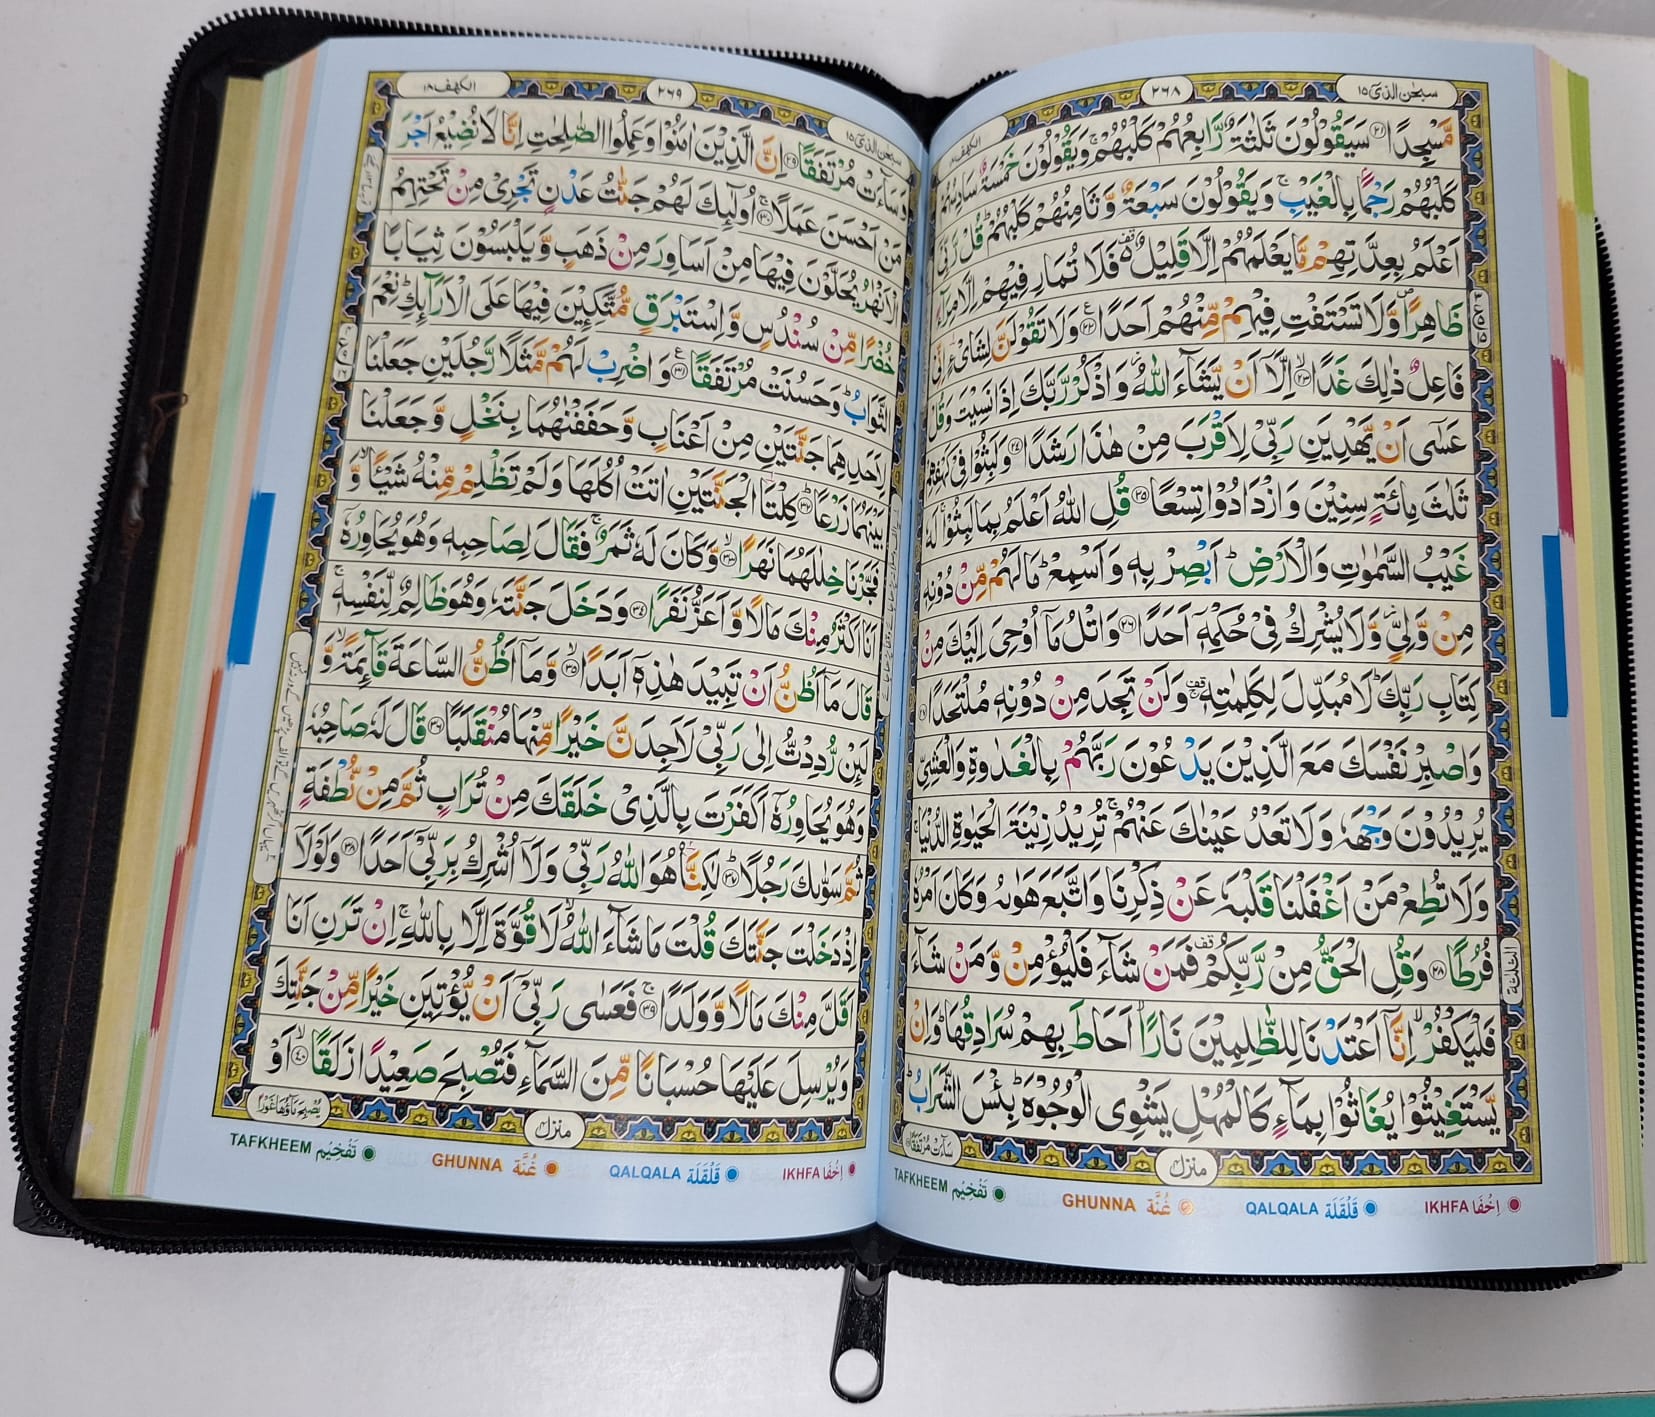 سبحٰن الذیٓ ۱۵
۲۶۸
الکہف ۱۸
مَّسْجِدًا ﴿۲۱﴾ سَيَقُوْلُوْنَ ثَلٰثَةٌ رَّابِعُهُمْ كَلْبُهُمْ ۚ وَيَقُوْلُوْنَ خَمْسَةٌ سَادِسُهُمْ
كَلْبُهُمْ رَجْمًۢا بِالْغَيْبِ ۚ وَيَقُوْلُوْنَ سَبْعَةٌ وَّثَامِنُهُمْ كَلْبُهُمْ ؕ قُلْ رَّبِّیْٓ
اَعْلَمُ بِعِدَّتِهِمْ مَّا يَعْلَمُهُمْ اِلَّا قَلِيْلٌ ۫ فَلَا تُمَارِ فِيْهِمْ اِلَّا مِرَآءً
ظَاهِرًا ۪ وَّلَا تَسْتَفْتِ فِيْهِمْ مِّنْهُمْ اَحَدًا ﴿۲۲﴾ وَلَا تَقُوْلَنَّ لِشَایْءٍ اِنِّیْ
فَاعِلٌ ذٰلِكَ غَدًا ﴿۲۳﴾ اِلَّاۤ اَنْ يَّشَآءَ اللّٰهُ ؗ وَاذْكُرْ رَّبَّكَ اِذَا نَسِيْتَ وَقُلْ
عَسٰۤی اَنْ يَّهْدِيَنِ رَبِّیْ لِاَقْرَبَ مِنْ هٰذَا رَشَدًا ﴿۲۴﴾ وَلَبِثُوْا فِیْ كَهْفِهِمْ
ثَلٰثَ مِائَةٍ سِنِيْنَ وَازْدَادُوْا تِسْعًا ﴿۲۵﴾ قُلِ اللّٰهُ اَعْلَمُ بِمَا لَبِثُوْا ۚ لَهٗ
غَيْبُ السَّمٰوٰتِ وَالْاَرْضِ ؕ اَبْصِرْ بِهٖ وَاَسْمِعْ ؕ مَا لَهُمْ مِّنْ دُوْنِهٖ
مِنْ وَّلِیٍّ ؗ وَّلَا يُشْرِكُ فِیْ حُكْمِهٖۤ اَحَدًا ﴿۲۶﴾ وَاتْلُ مَاۤ اُوْحِیَ اِلَيْكَ مِنْ
كِتَابِ رَبِّكَ ؕ لَا مُبَدِّلَ لِكَلِمٰتِهٖ ۚ وَلَنْ تَجِدَ مِنْ دُوْنِهٖ مُلْتَحَدًا ﴿۲۷﴾
وَاصْبِرْ نَفْسَكَ مَعَ الَّذِيْنَ يَدْعُوْنَ رَبَّهُمْ بِالْغَدٰوةِ وَالْعَشِیِّ
يُرِيْدُوْنَ وَجْهَهٗ وَلَا تَعْدُ عَيْنٰكَ عَنْهُمْ ۚ تُرِيْدُ زِيْنَةَ الْحَيٰوةِ الدُّنْيَا ۚ
وَلَا تُطِعْ مَنْ اَغْفَلْنَا قَلْبَهٗ عَنْ ذِكْرِنَا وَاتَّبَعَ هَوٰىهُ وَكَانَ اَمْرُهٗ
فُرُطًا ﴿۲۸﴾ وَقُلِ الْحَقُّ مِنْ رَّبِّكُمْ فَمَنْ شَآءَ فَلْيُؤْمِنْ وَّمَنْ شَآءَ
فَلْيَكْفُرْ ۙ اِنَّاۤ اَعْتَدْنَا لِلظّٰلِمِيْنَ نَارًا ۙ اَحَاطَ بِهِمْ سُرَادِقُهَا ؕ وَاِنْ
يَّسْتَغِيْثُوْا يُغَاثُوْا بِمَآءٍ كَالْمُهْلِ يَشْوِی الْوُجُوْهَ ؕ بِئْسَ الشَّرَابُ ؕ
منزل
IKHFA اِخْفَا
QALQALA قَلْقَلَة
GHUNNA غُنَّة
TAFKHEEM تَفْخِیْم
سبحٰن الذیٓ ۱۵
۲۶۹
الکہف ۱۸
وَسَآءَتْ مُرْتَفَقًا ﴿۲۹﴾ اِنَّ الَّذِيْنَ اٰمَنُوْا وَعَمِلُوا الصّٰلِحٰتِ اِنَّا لَا نُضِيْعُ اَجْرَ
مَنْ اَحْسَنَ عَمَلًا ﴿۳۰﴾ اُولٰٓئِكَ لَهُمْ جَنّٰتُ عَدْنٍ تَجْرِیْ مِنْ تَحْتِهِمُ
الْاَنْهٰرُ يُحَلَّوْنَ فِيْهَا مِنْ اَسَاوِرَ مِنْ ذَهَبٍ وَّيَلْبَسُوْنَ ثِيَابًا
خُضْرًا مِّنْ سُنْدُسٍ وَّاِسْتَبْرَقٍ مُّتَّكِـِٕيْنَ فِيْهَا عَلَی الْاَرَآئِكِ ؕ نِعْمَ
الثَّوَابُ ؕ وَحَسُنَتْ مُرْتَفَقًا ﴿۳۱﴾ وَاضْرِبْ لَهُمْ مَّثَلًا رَّجُلَيْنِ جَعَلْنَا
لِاَحَدِهِمَا جَنَّتَيْنِ مِنْ اَعْنَابٍ وَّحَفَفْنٰهُمَا بِنَخْلٍ وَّجَعَلْنَا
بَيْنَهُمَا زَرْعًا ﴿۳۲﴾ كِلْتَا الْجَنَّتَيْنِ اٰتَتْ اُكُلَهَا وَلَمْ تَظْلِمْ مِّنْهُ شَيْـًٔا ۙ وَّ
فَجَّرْنَا خِلٰلَهُمَا نَهَرًا ﴿۳۳﴾ وَّكَانَ لَهٗ ثَمَرٌ ۚ فَقَالَ لِصَاحِبِهٖ وَهُوَ يُحَاوِرُهٗۤ
اَنَا اَكْثَرُ مِنْكَ مَالًا وَّاَعَزُّ نَفَرًا ﴿۳۴﴾ وَدَخَلَ جَنَّتَهٗ وَهُوَ ظَالِمٌ لِّنَفْسِهٖ ۚ
قَالَ مَاۤ اَظُنُّ اَنْ تَبِيْدَ هٰذِهٖۤ اَبَدًا ﴿۳۵﴾ وَّمَاۤ اَظُنُّ السَّاعَةَ قَآئِمَةً ۙ وَّ
لَئِنْ رُّدِدْتُّ اِلٰی رَبِّیْ لَاَجِدَنَّ خَيْرًا مِّنْهَا مُنْقَلَبًا ﴿۳۶﴾ قَالَ لَهٗ صَاحِبُهٗ
وَهُوَ يُحَاوِرُهٗۤ اَكَفَرْتَ بِالَّذِیْ خَلَقَكَ مِنْ تُرَابٍ ثُمَّ مِنْ نُّطْفَةٍ
ثُمَّ سَوّٰىكَ رَجُلًا ﴿۳۷﴾ لٰكِنَّا هُوَ اللّٰهُ رَبِّیْ وَلَاۤ اُشْرِكُ بِرَبِّیْۤ اَحَدًا ﴿۳۸﴾ وَلَوْلَاۤ
اِذْ دَخَلْتَ جَنَّتَكَ قُلْتَ مَا شَآءَ اللّٰهُ ۙ لَا قُوَّةَ اِلَّا بِاللّٰهِ ۚ اِنْ تَرَنِ اَنَا
اَقَلَّ مِنْكَ مَالًا وَّوَلَدًا ﴿۳۹﴾ فَعَسٰی رَبِّیْۤ اَنْ يُّؤْتِيَنِ خَيْرًا مِّنْ جَنَّتِكَ
وَيُرْسِلَ عَلَيْهَا حُسْبَانًا مِّنَ السَّمَآءِ فَتُصْبِحَ صَعِيْدًا زَلَقًا ﴿۴۰﴾ اَوْ
منزل
IKHFA اِخْفَا
QALQALA قَلْقَلَة
GHUNNA غُنَّة
TAFKHEEM تَفْخِیْم